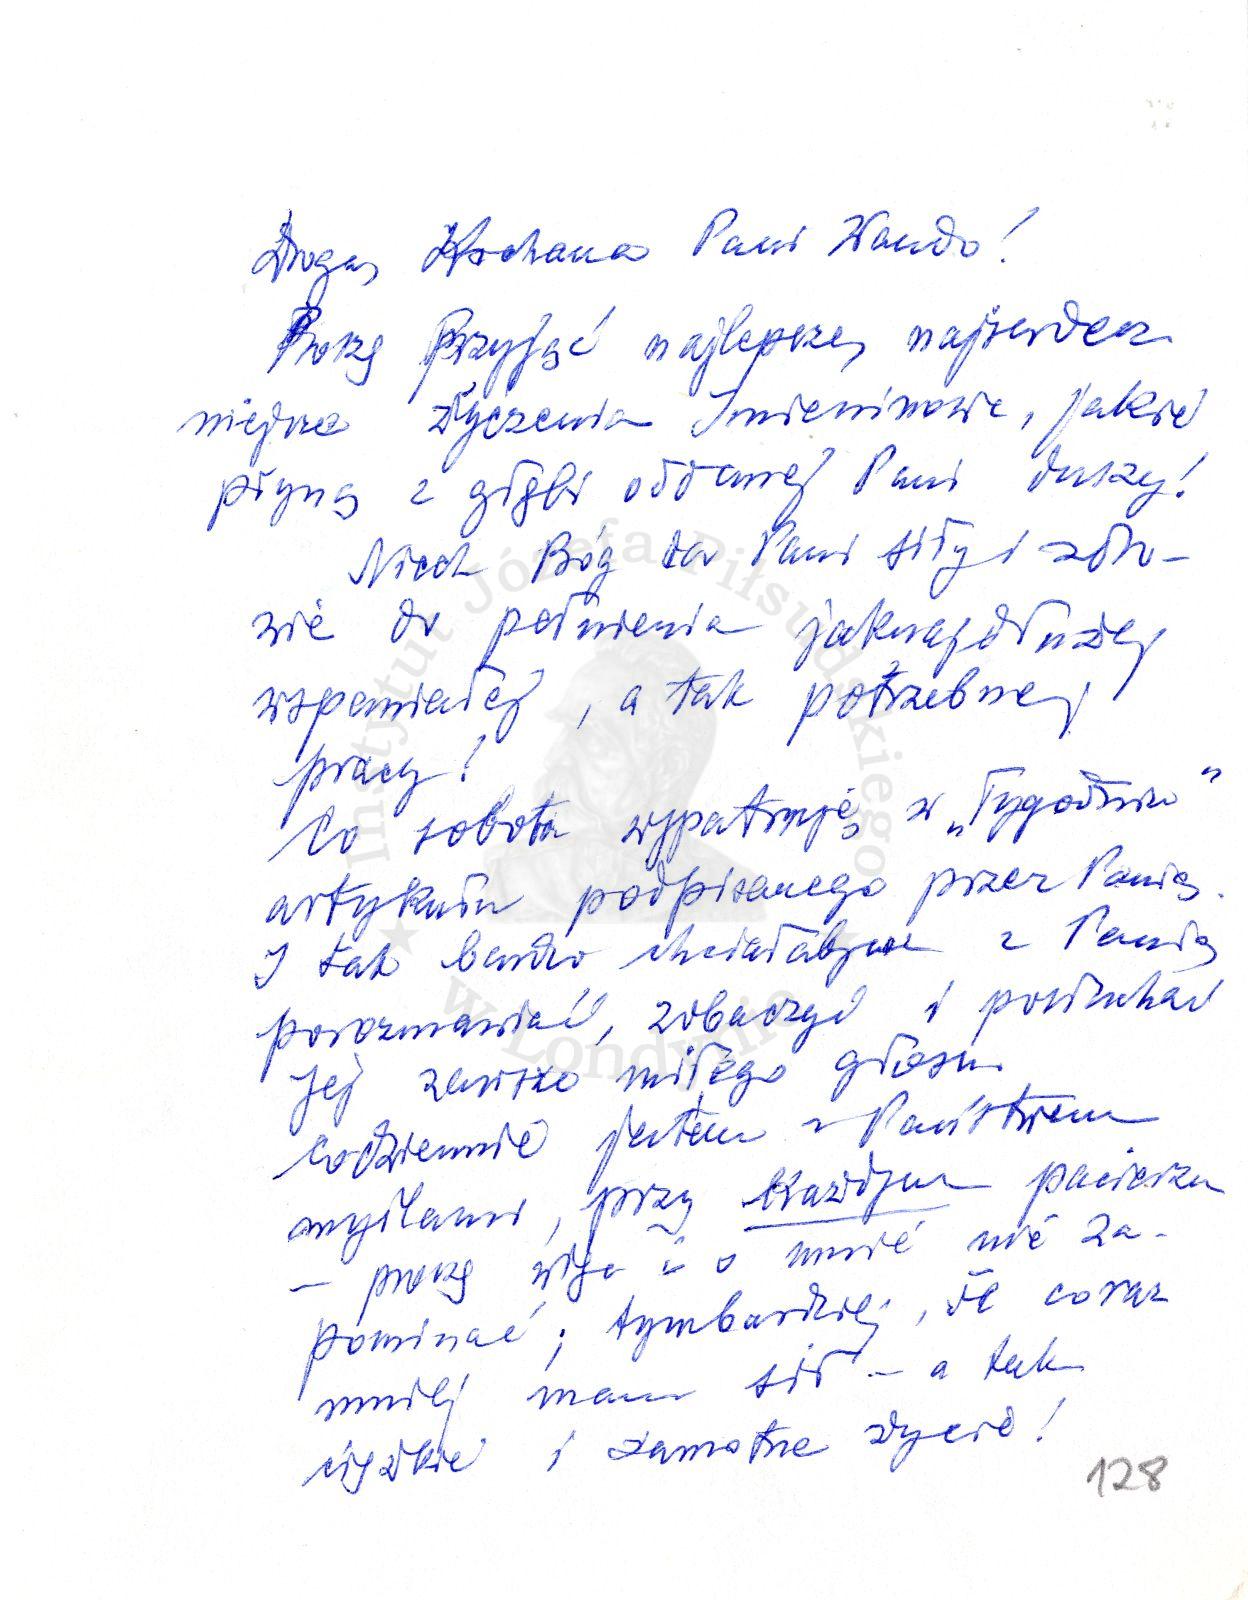 Droga, Kochana Pani Wando!
Proszę Przyjąć najlepsze, najserdecz
niejsze życzenia Imieninowe, jakie
płyną z głębi oddanej Pani duszy!
Niech Bóg da Pani siły i zdro-
wie do pełnienia jaknajdłużej
wspaniałej, a tak potrzebnej
pracy!
Co sobota wypatruję w „Tygodniu"
artykułu podpisanego przez Panią.
I tak bardzo chciałabym z Panią
porozmawiać, zobaczyć i posłuchać
Jej zawsze miłego głosu.
Codziennie jestem z Państwem
myślami, przy każdym pacierzu
– proszę więc i o mnie nie za-
pominać; tymbardziej, że coraz
mniej mam sił – a tak
ciężkie i samotne życie!
128
Instytut Józefa Piłsudskiego
w Londynie